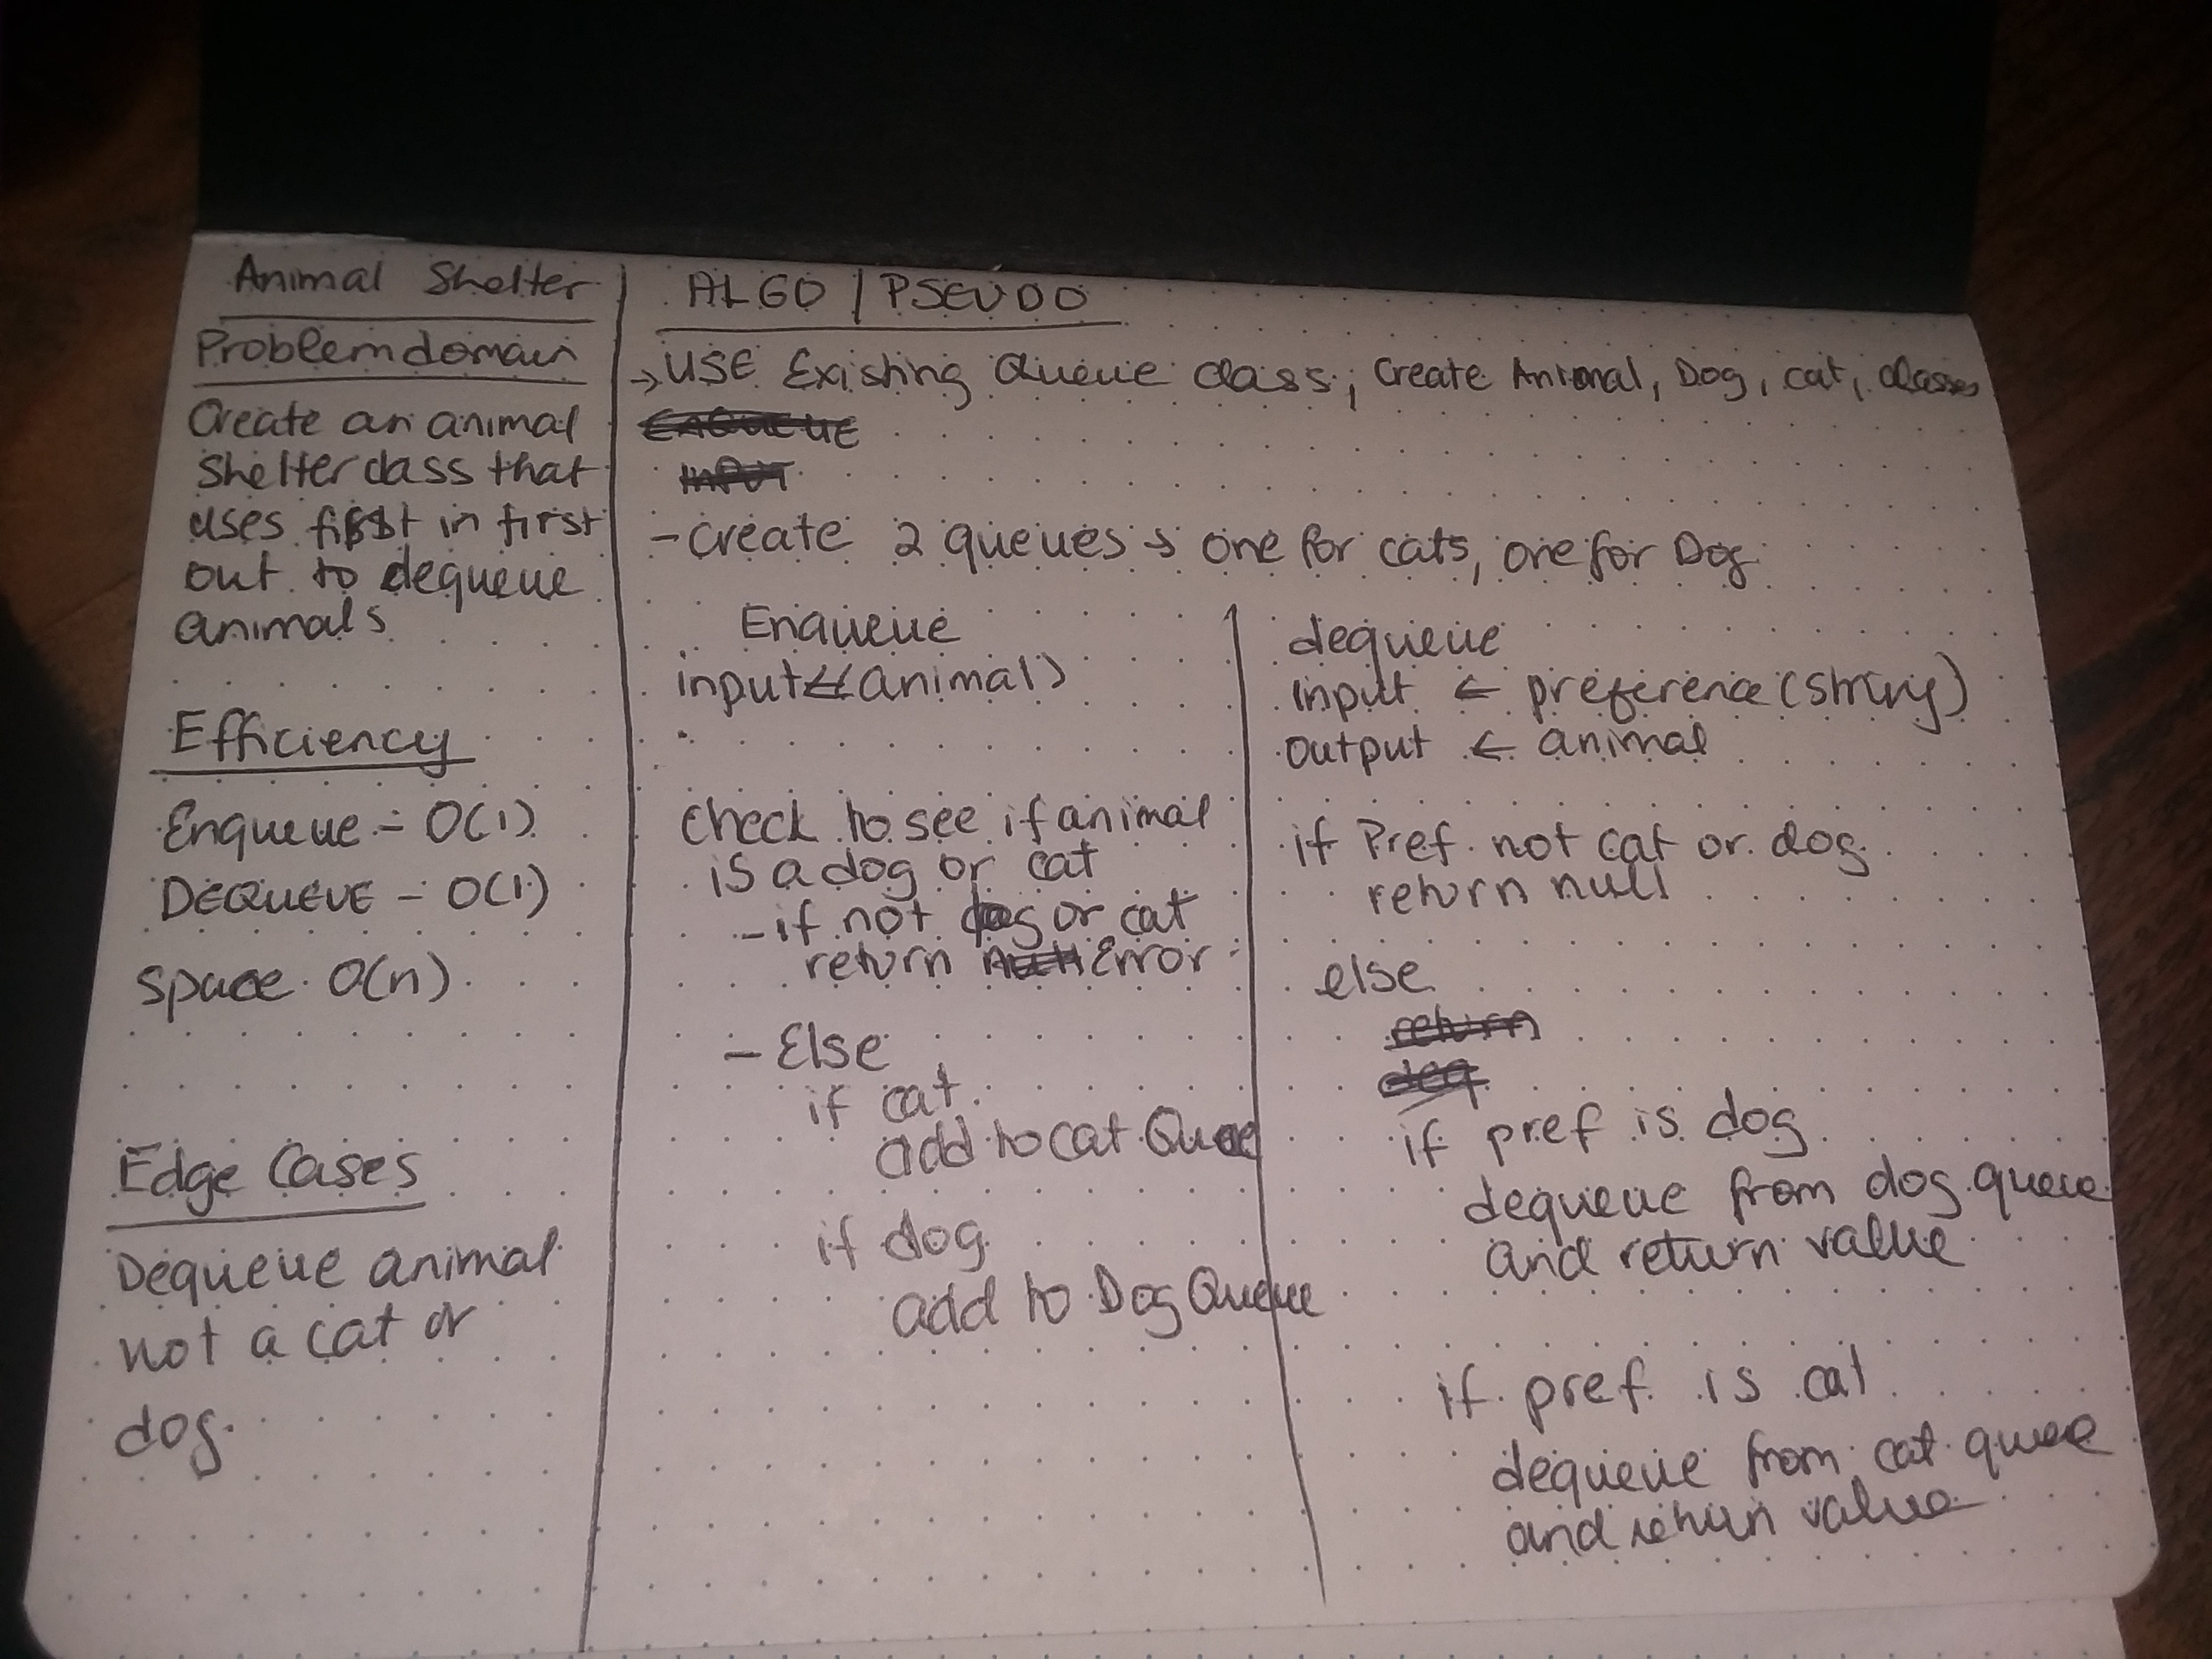 Animal Shelter
Problem domain
Create an animal
shelter class that
uses first in first
out to dequeue
animals
Efficiency
Enqueue - O(1)
Dequeue - O(1)
Space O(n)
Edge Cases
Dequeue animal
not a cat or
dog.
ALGO / PSEUDO
→ USE Existing Queue class, create Animal, Dog, cat, classes
- create 2 queues → one for cats, one for Dog
Enqueue
input ← (animal)
check to see if animal
is a dog or cat
- if not dog or cat
return Error
- Else
if cat
add to cat Queue
if dog
add to Dog Queue
dequeue
input ← preference (string)
output ← animal
if pref not cat or dog
return null
else
if pref is dog
dequeue from dog queue
and return value
if pref is cat
dequeue from cat queue
and return value